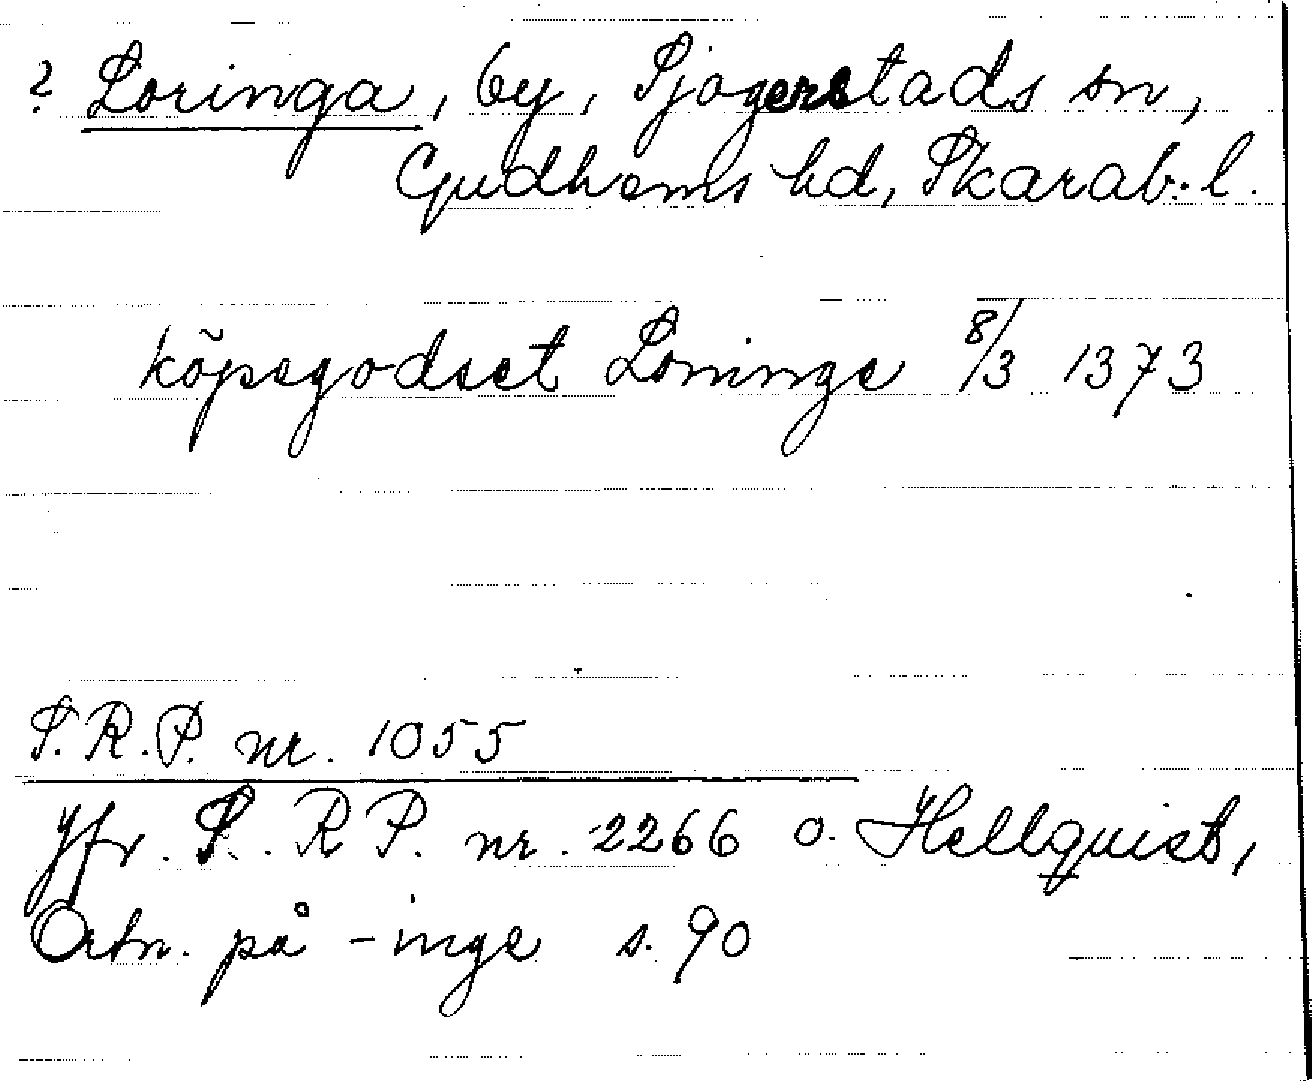 ? Loringa, by, Sjogerstads sn,
Gudhems hd, Skarab. l.
köpegodset Loninge 8/3 1373
S.R.P. nr. 1055
Jfr. S.R.P. nr. 2266 o. Hellquist,
Ortn. på -inge s. 90